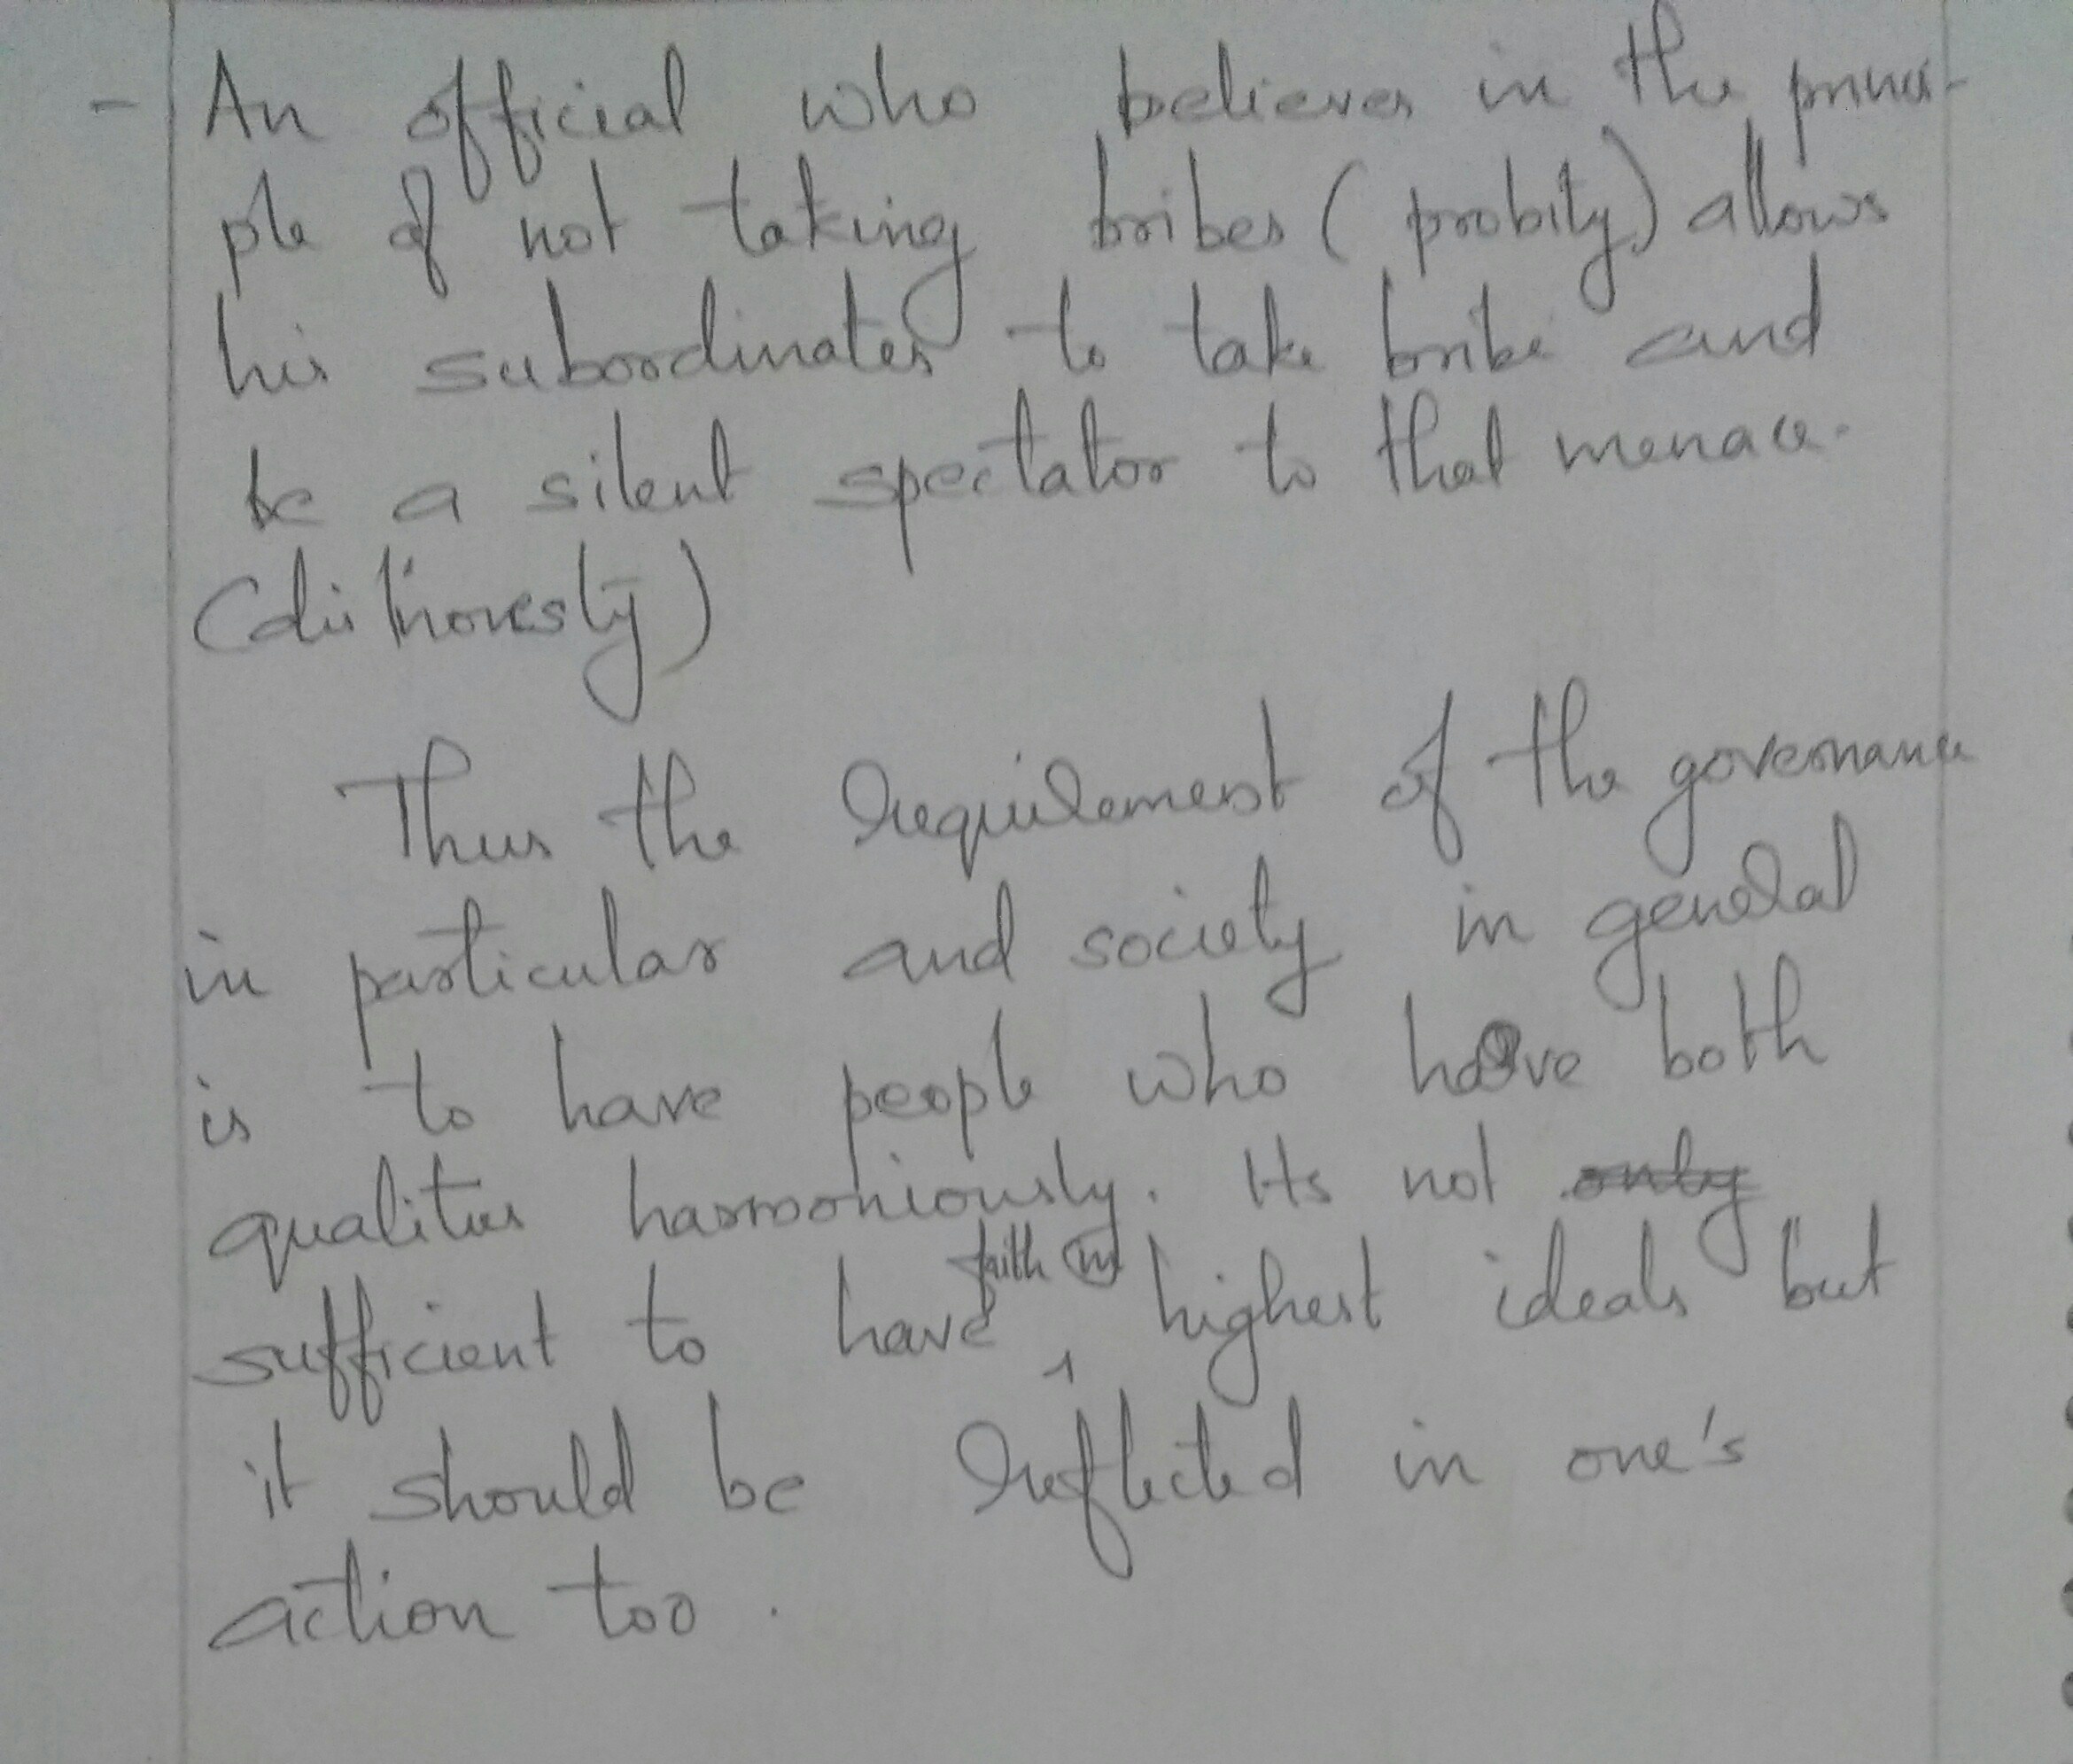 - An official who believes in the princi-
ple of not taking bribes (probity) allows
his subordinates to take bribe and
be a silent spectator to that menace.
(dishonesty)
Thus the requirement of the governance
in particular and society in general
is to have people who have both
qualities harmoniously. Its not only
sufficient to have faith in highest ideals but
it should be reflected in one's
action too.